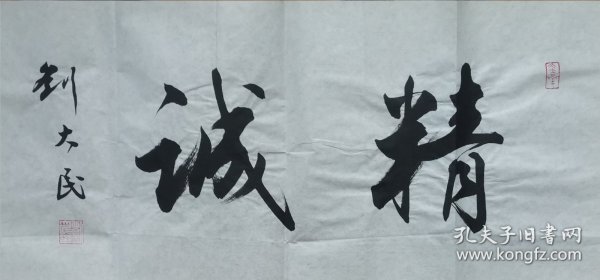 精
誠
劉大民
孔夫子旧书网
www.kongfz.com